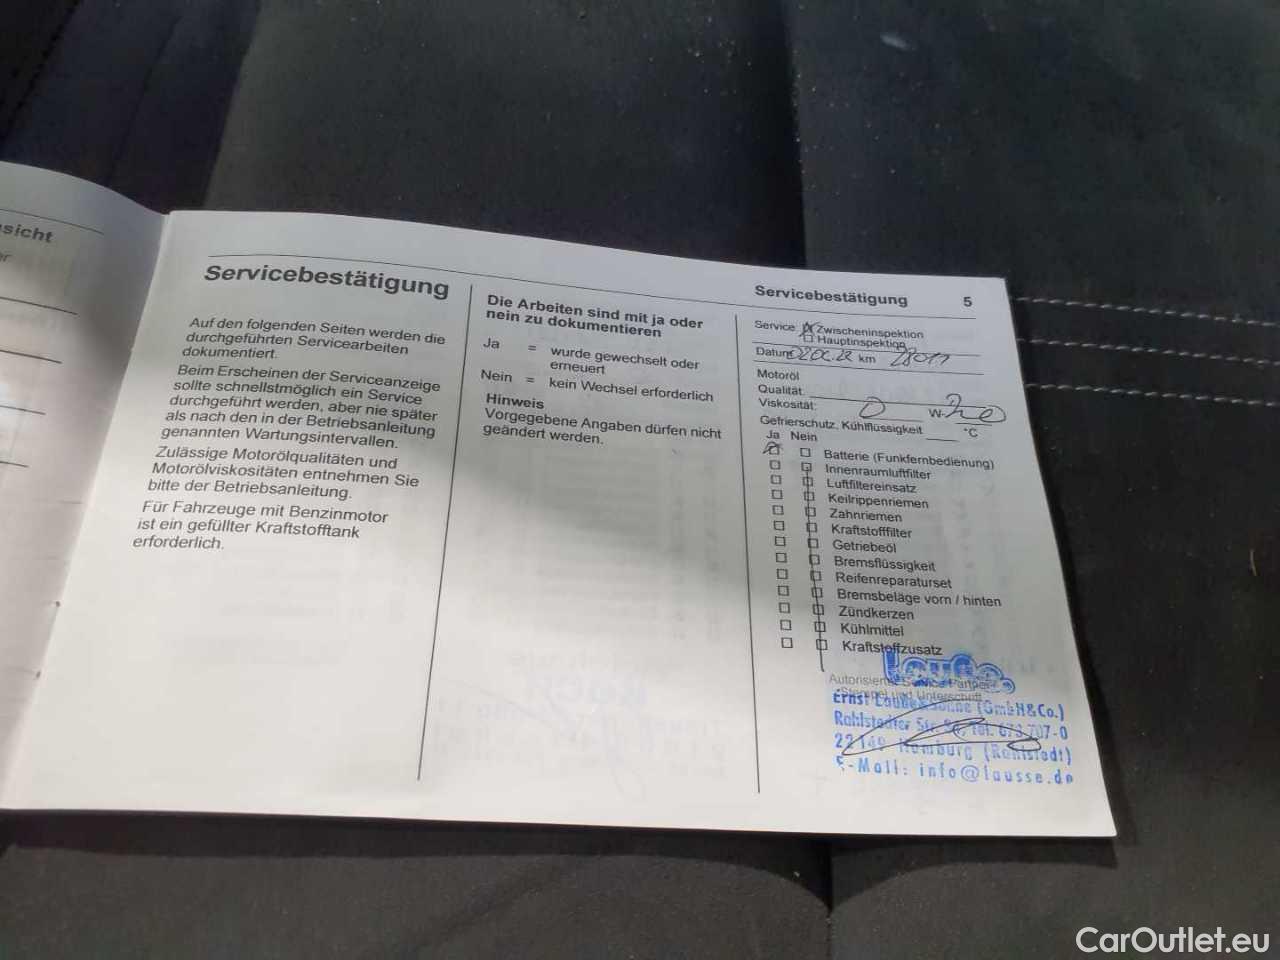 sicht
Servicebestätigung
Auf den folgenden Seiten werden die
durchgeführten Servicearbeiten
dokumentiert.
Beim Erscheinen der Serviceanzeige
sollte schnellstmöglich ein Service
durchgeführt werden, aber nie später
als nach den in der Betriebsanleitung
genannten Wartungsintervallen.
Zulässige Motorölqualitäten und
Motorölviskositäten entnehmen Sie
bitte der Betriebsanleitung.
Für Fahrzeuge mit Benzinmotor
ist ein gefüllter Kraftstofftank
erforderlich.
Die Arbeiten sind mit ja oder
nein zu dokumentieren
Ja = wurde gewechselt oder
erneuert
Nein = kein Wechsel erforderlich
Hinweis
Vorgegebene Angaben dürfen nicht
geändert werden.
Servicebestätigung 5
Service Zwischeninspektion
Hauptinspektion
Datum km 28011
Motoröl
Qualität:
Viskosität: 0 W- 20
Gefrierschutz, Kühlflüssigkeit °C
Ja Nein
Batterie (Funkfernbedienung)
Innenraumluftfilter
Luftfiltereinsatz
Keilrippenriemen
Zahnriemen
Kraftstofffilter
Getriebeöl
Bremsflüssigkeit
Reifenreparaturset
Bremsbeläge vorn / hinten
Zündkerzen
Kühlmittel
Kraftstoffzusatz
Autorisierter Service Partner
Stempel und Unterschrift
Ernst (GmbH&Co.)
Rahlstedter Str. Tel. 673 707-0
22149 Hamburg (Rahlstedt)
E-Mail: info@lausse.de
CarOutlet.eu